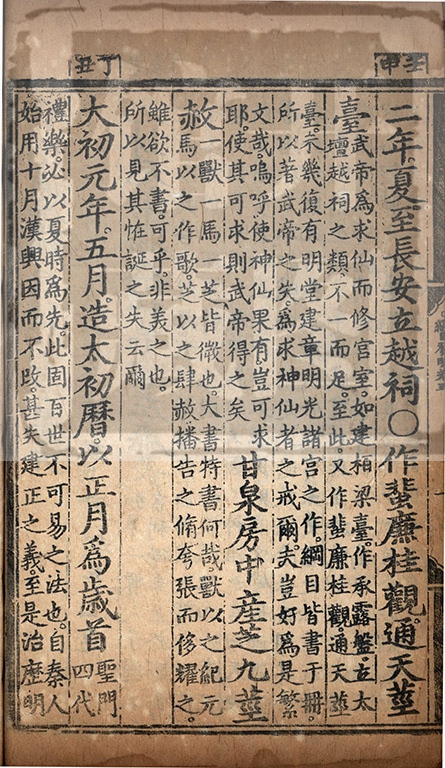 壬申
二年。夏至長安立越祠〇作蜚廉桂觀。通天莖
臺
武帝為求仙而修宮室。如建柏梁臺。作承露盤。立太
壇越祠之類。不一而足。至此。又作蜚廉桂觀通天莖
臺。未幾復有明堂建章明光諸宮之作。綱目皆書于冊。
所以著武帝之失。為求神仙者之戒爾。夫豈好為是繁
文哉。嗚呼使神仙果有。豈可求
耶。使其可求則武帝得之矣
甘泉房中産芝九莖
赦
一獸一馬一芝皆微也。大書特書何哉。獸以之紀元
馬以之作歌。芝以之肆赦。播告之脩夸張而侈耀之。
雖欲不書。可乎。非美之也。
所以見其恠誕之失云爾
丁丑
大初元年。五月。造太初曆。以正月為歲首
聖門
四代
禮樂。必以夏時為先。此固百世不可易之法也。自秦人
始用十月。漢興因而不改。甚失建正之義。至是治歷明